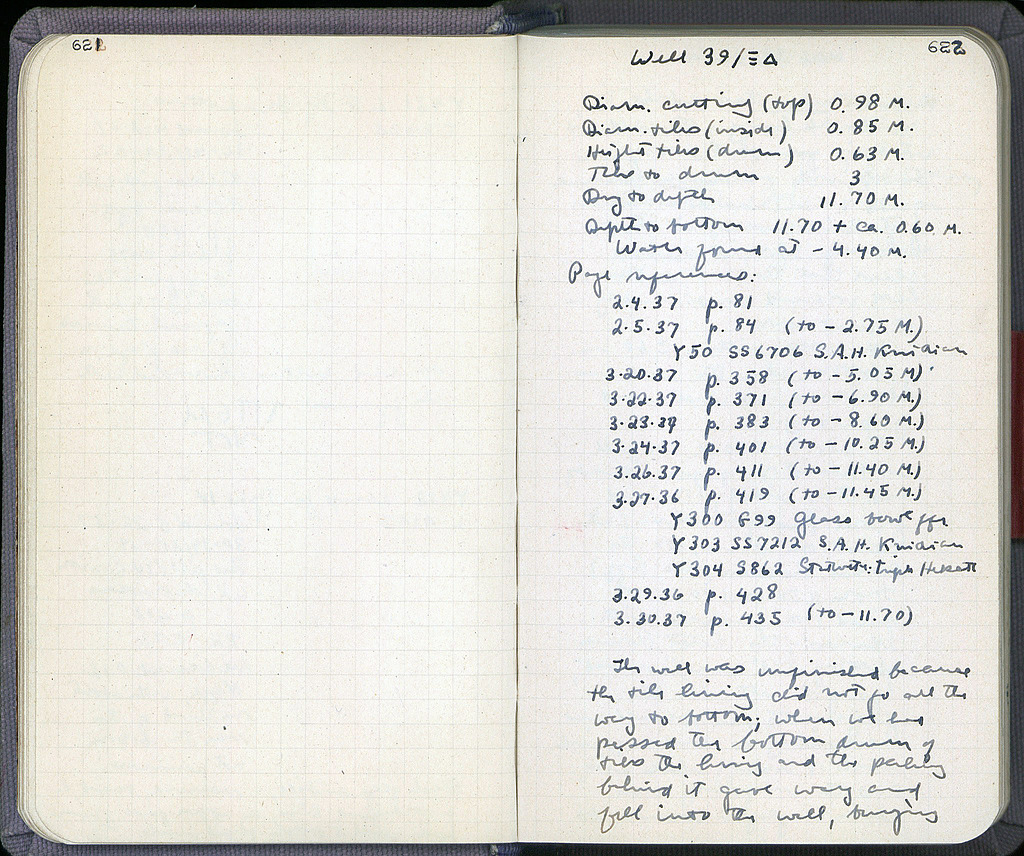 621
622
Well 39/ΞΔ
Diam. cutting (top) 0.98 M.
Diam. tiles (inside) 0.85 M.
Height tiles (drum) 0.63 M.
Tiles to drum 3
Dug to depth 11.70 M.
Depth to bottom 11.70 + ca. 0.60 M.
Water found at - 4.40 M.
Page references:
2.4.37 p. 81
2.5.37 p. 84 (to - 2.75 M.)
Y50 SS6706 S.A.H. Knidian
3.20.37 p. 358 (to - 5.05 M.)
3.22.37 p. 371 (to - 6.90 M.)
3.23.37 p. 383 (to - 8.60 M.)
3.24.37 p. 401 (to - 10.25 M.)
3.26.37 p. 411 (to - 11.40 M.)
3.27.36 p. 419 (to - 11.45 M.)
Y300 G99 Glass bowl
Y303 SS7212 S.A.H. Knidian
Y304 S862 Triple
3.29.36 p. 428
3.30.37 p. 435 (to - 11.70)
The well was unfinished because
the tile lining did not go all the
way to bottom; when we had
passed the bottom drum of
tiles the lining and the packing
behind it gave way and
fell into the well, burying